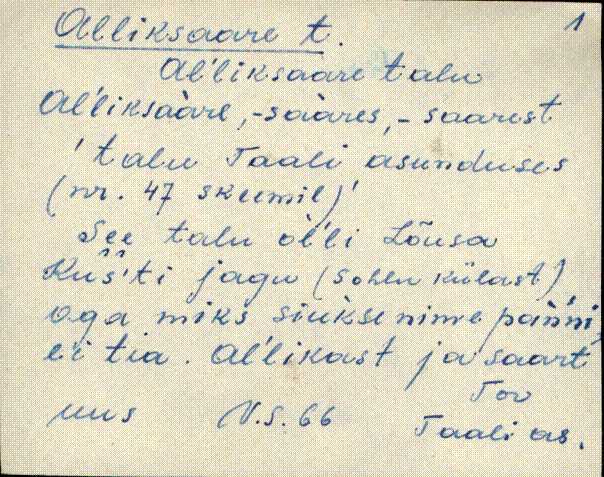 Alliksaare t. 1
Al'liksaare talu
Al'liksaàre, -saàres, - saarest
'talu Taali asunduses
(nr. 47 skeemil)'
See talu òl'li Lõusa
Kûŝ'ti jagu (Sohlu külast),
oga miks siukse nime pànni,
ei tia. Al'likast ja saart
Tov
uus V.S. 66
Taali as.